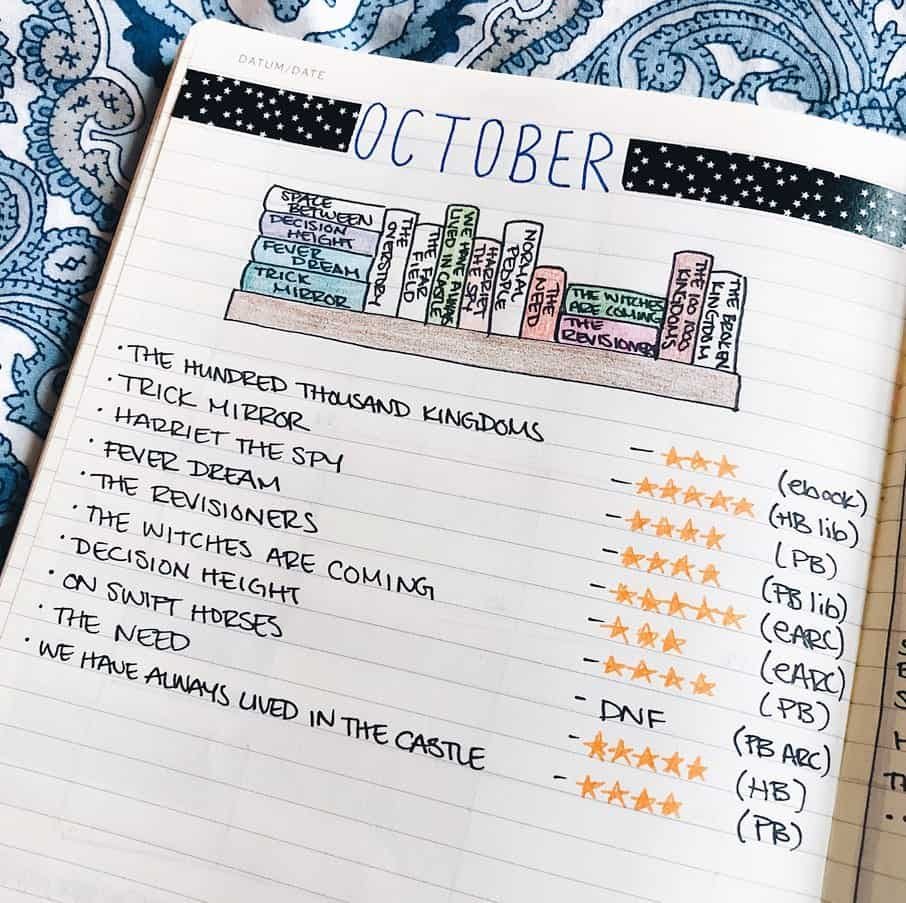 DATUM/DATE
OCTOBER
SPACE
BETWEEN
DECISION
HEIGHT
FEVER
DREAM
TRICK
MIRROR
THE
OVERSTORY
THE FAR
FIELD
WE HAVE ALWAYS
LIVED IN CASTLE
HARRIET
THE SPY
NORMAL
PEOPLE
THE
NEED
THE WITCHES
ARE COMING
THE
REVISIONERS
THE 100,000
KINGDOMS
THE BROKEN
KINGDOM
· THE HUNDRED THOUSAND KINGDOMS - ★★★ (ebook)
· TRICK MIRROR - ★★★★★ (HB lib)
· HARRIET THE SPY - ★★★★ (PB)
· FEVER DREAM - ★★★★ (PB lib)
· THE REVISIONERS - ★★★★★ (eARC)
· THE WITCHES ARE COMING - ★★★ (eARC)
· DECISION HEIGHT - ★★★★ (PB)
· ON SWIFT HORSES - DNF (PB ARC)
· THE NEED - ★★★★★ (HB)
· WE HAVE ALWAYS LIVED IN THE CASTLE - ★★★★ (PB)